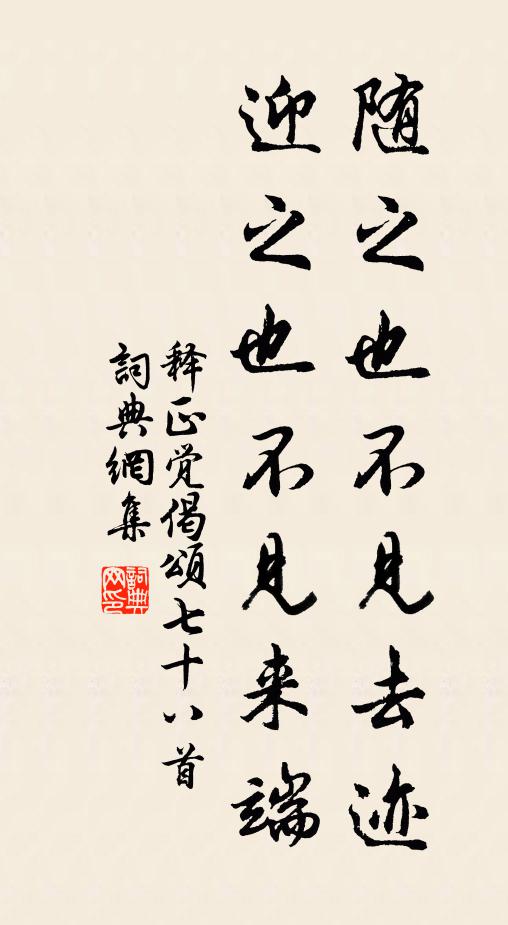 随之也不见去迹
迎之也不见来端
释正觉偈颂七十八首
詞典網集
詞典
网印